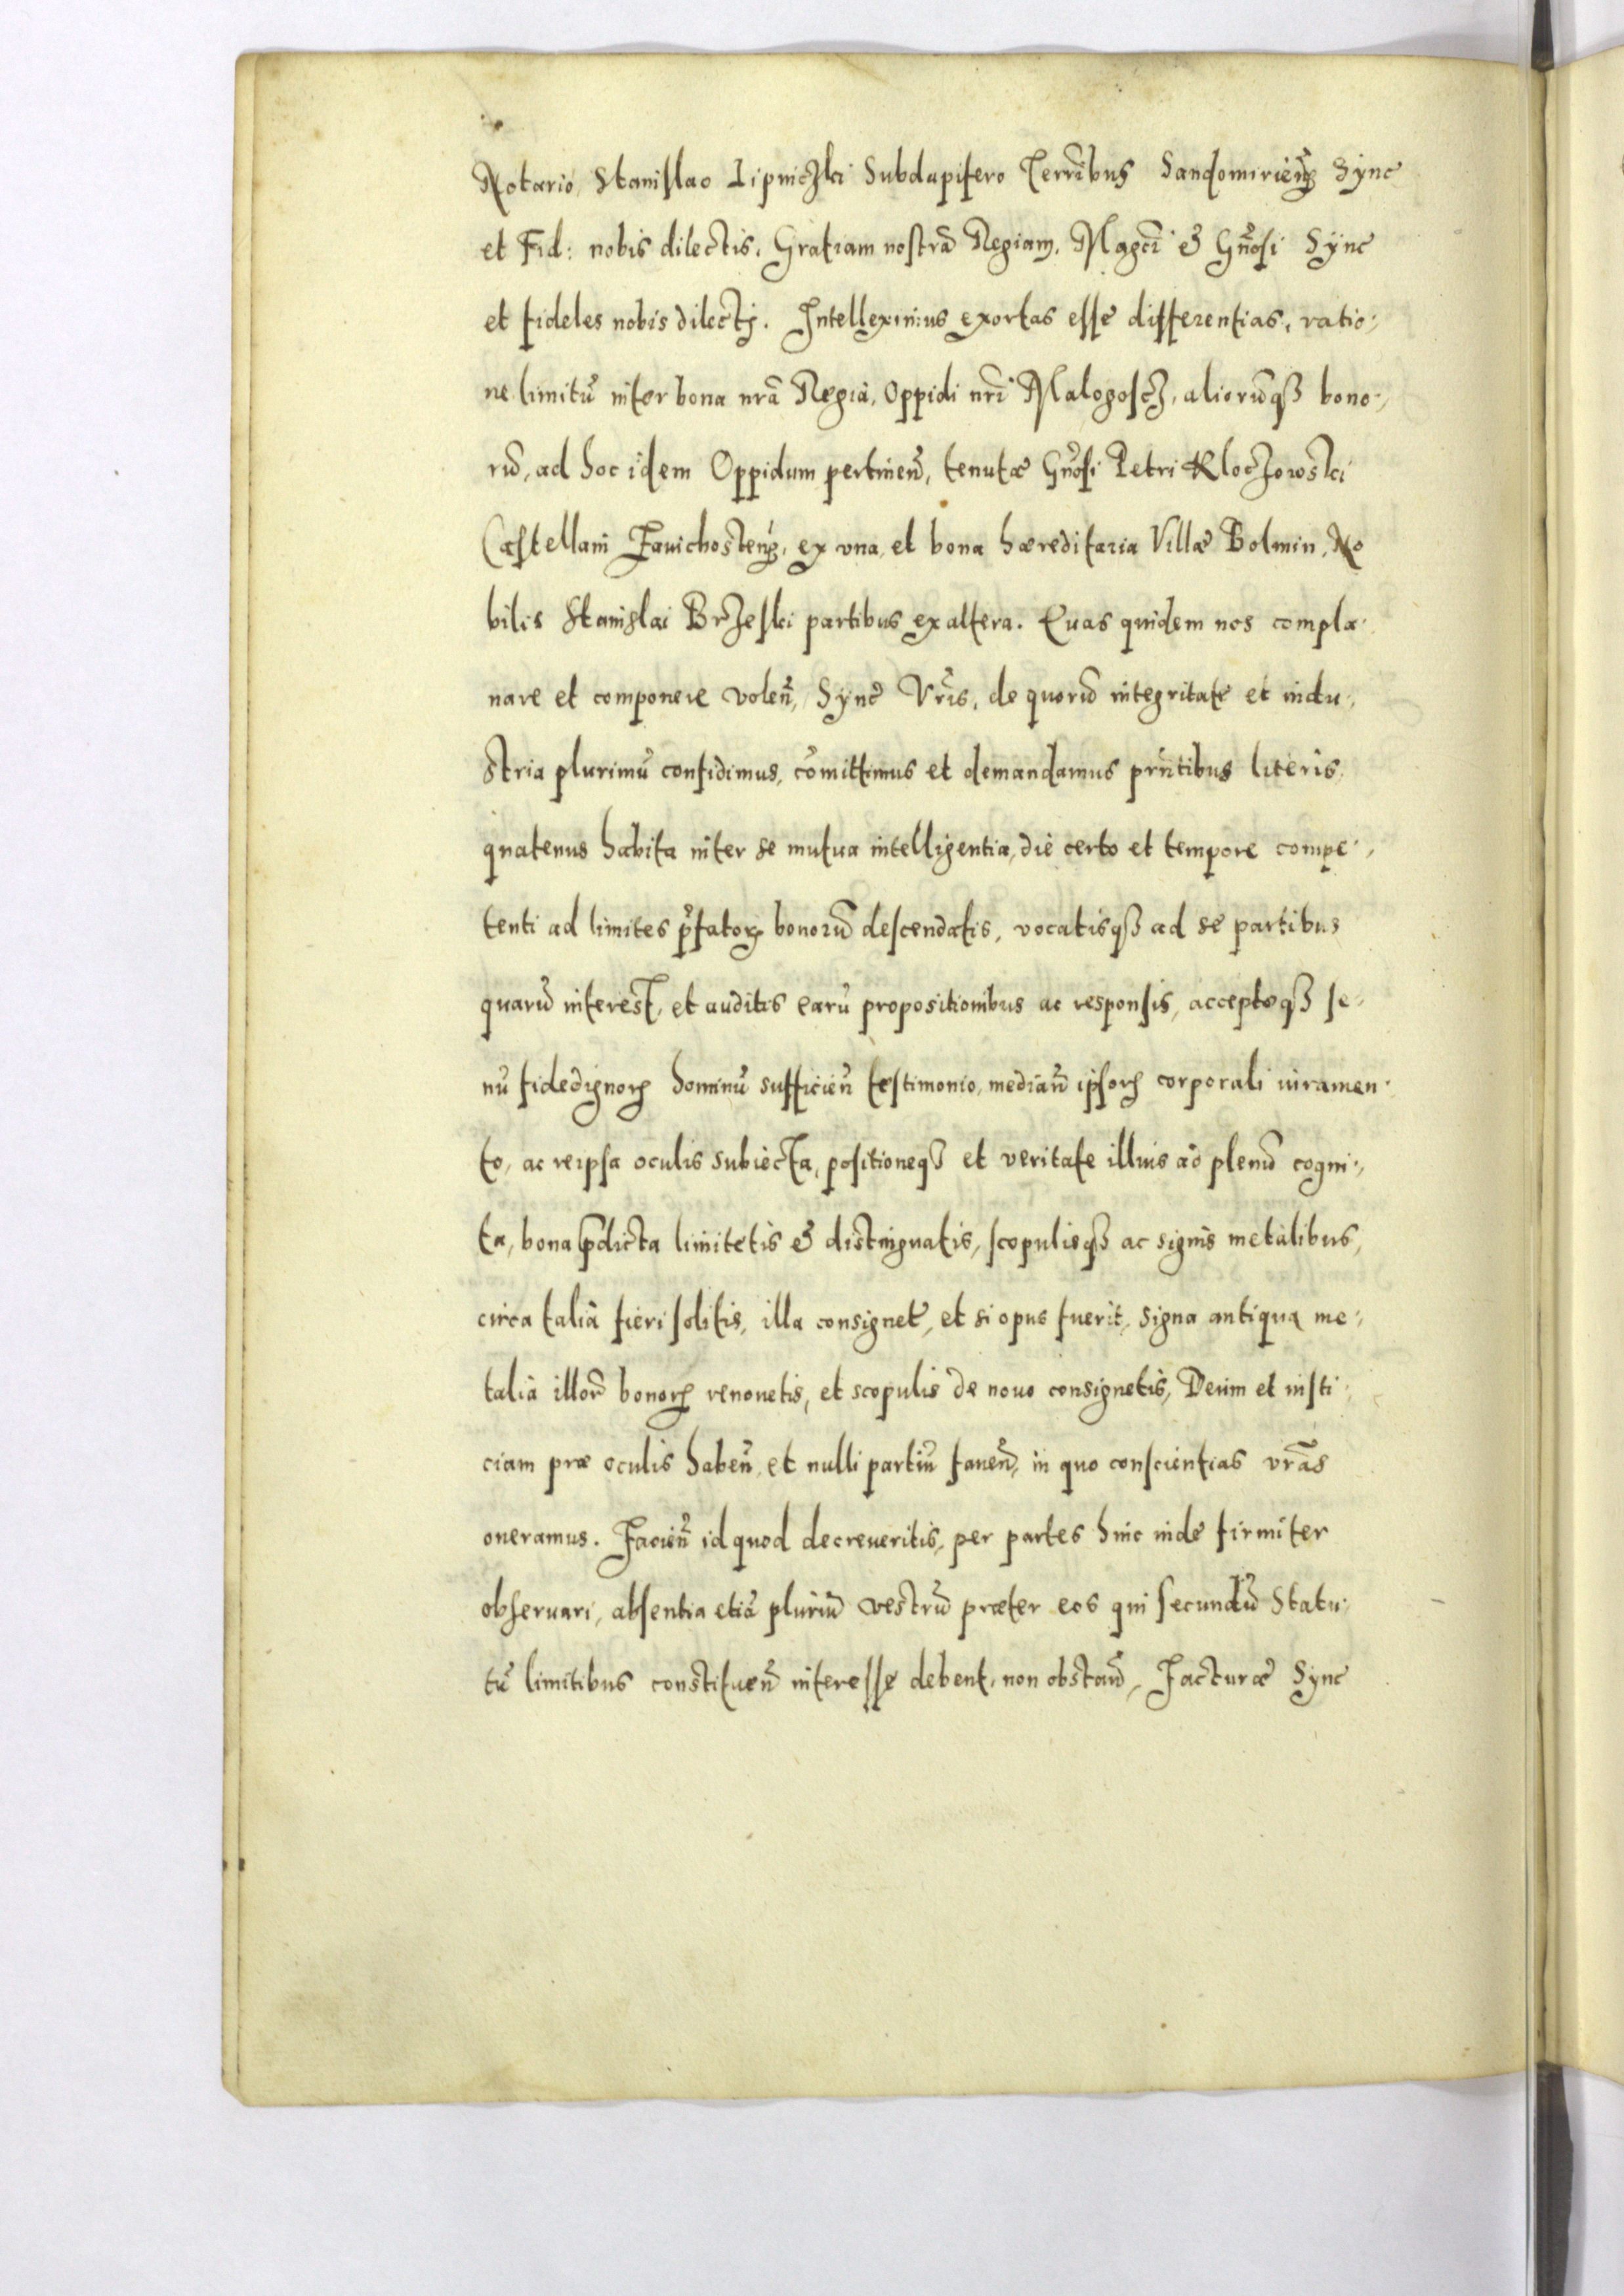 Notario, Stanislao Lipniczki Subdapifero Terrībus Sandomirieñ Sync
et Fid: nobis dilectis, Gratiam nostrā Regiam. Magcī & Gñosi Sync
et fideles nobis dilectj. Intelleximus exortas esse differentias, ratio-
ne limitū inter bona nrā Regia, Oppidi nrī Malogoscz, aliorūqꝫ bono-
rū, ad hoc idem Oppidum pertineñ, tenutæ Gñosi Petri Kloczowski
Castellani Zauichosteñ, ex vna, et bona hæreditaria Villæ Bolmin, No
bilis Stanislai Brzeski partibus ex altera. Quas quidem nos compla-
nare et componere voleñ, Sync Vrīs, de quorū integritate et indu-
stria plurimū confidimus, cōmittimus et demandamus prñtibus literis,
quatenus habita inter se mutua intelligentia, die certo et tempore compe-
tenti ad limites p̄fatoꝝ bonorū descendatis, vocatisqꝫ ad se partibus
quarū interest, et auditis earū propositionibus ac responsis, acceptoqꝫ se-
nū fidedignoꝝ hominū sufficieñ testimonio, mediañ ipsoꝝ corporali iuramen-
to, ac reipsa oculis subiecta, positioneqꝫ et veritate illius ad plenū cogni-
ta, bona p̄dicta limitetis & distinguatis, scopulisqꝫ ac signis metalibus,
circa talia fieri solitis, illa consignet, et si opus fuerit, signa antiqua me-
talia illor̄ bonoꝝ renouetis, et scopulis de nouo consignetis, Deum et iusti-
ciam præ oculis habeñ, et nulli partiū faueñ, in quo conscientias vrās
oneramus. Facieñ id quod decreueritis, per partes hinc inde firmiter
obseruari, absentia etiā pluriū vestrū præter eos qui secundū Statu-
tū limitibus constitueñ interesse debent, non obstañ, Facturæ Sync